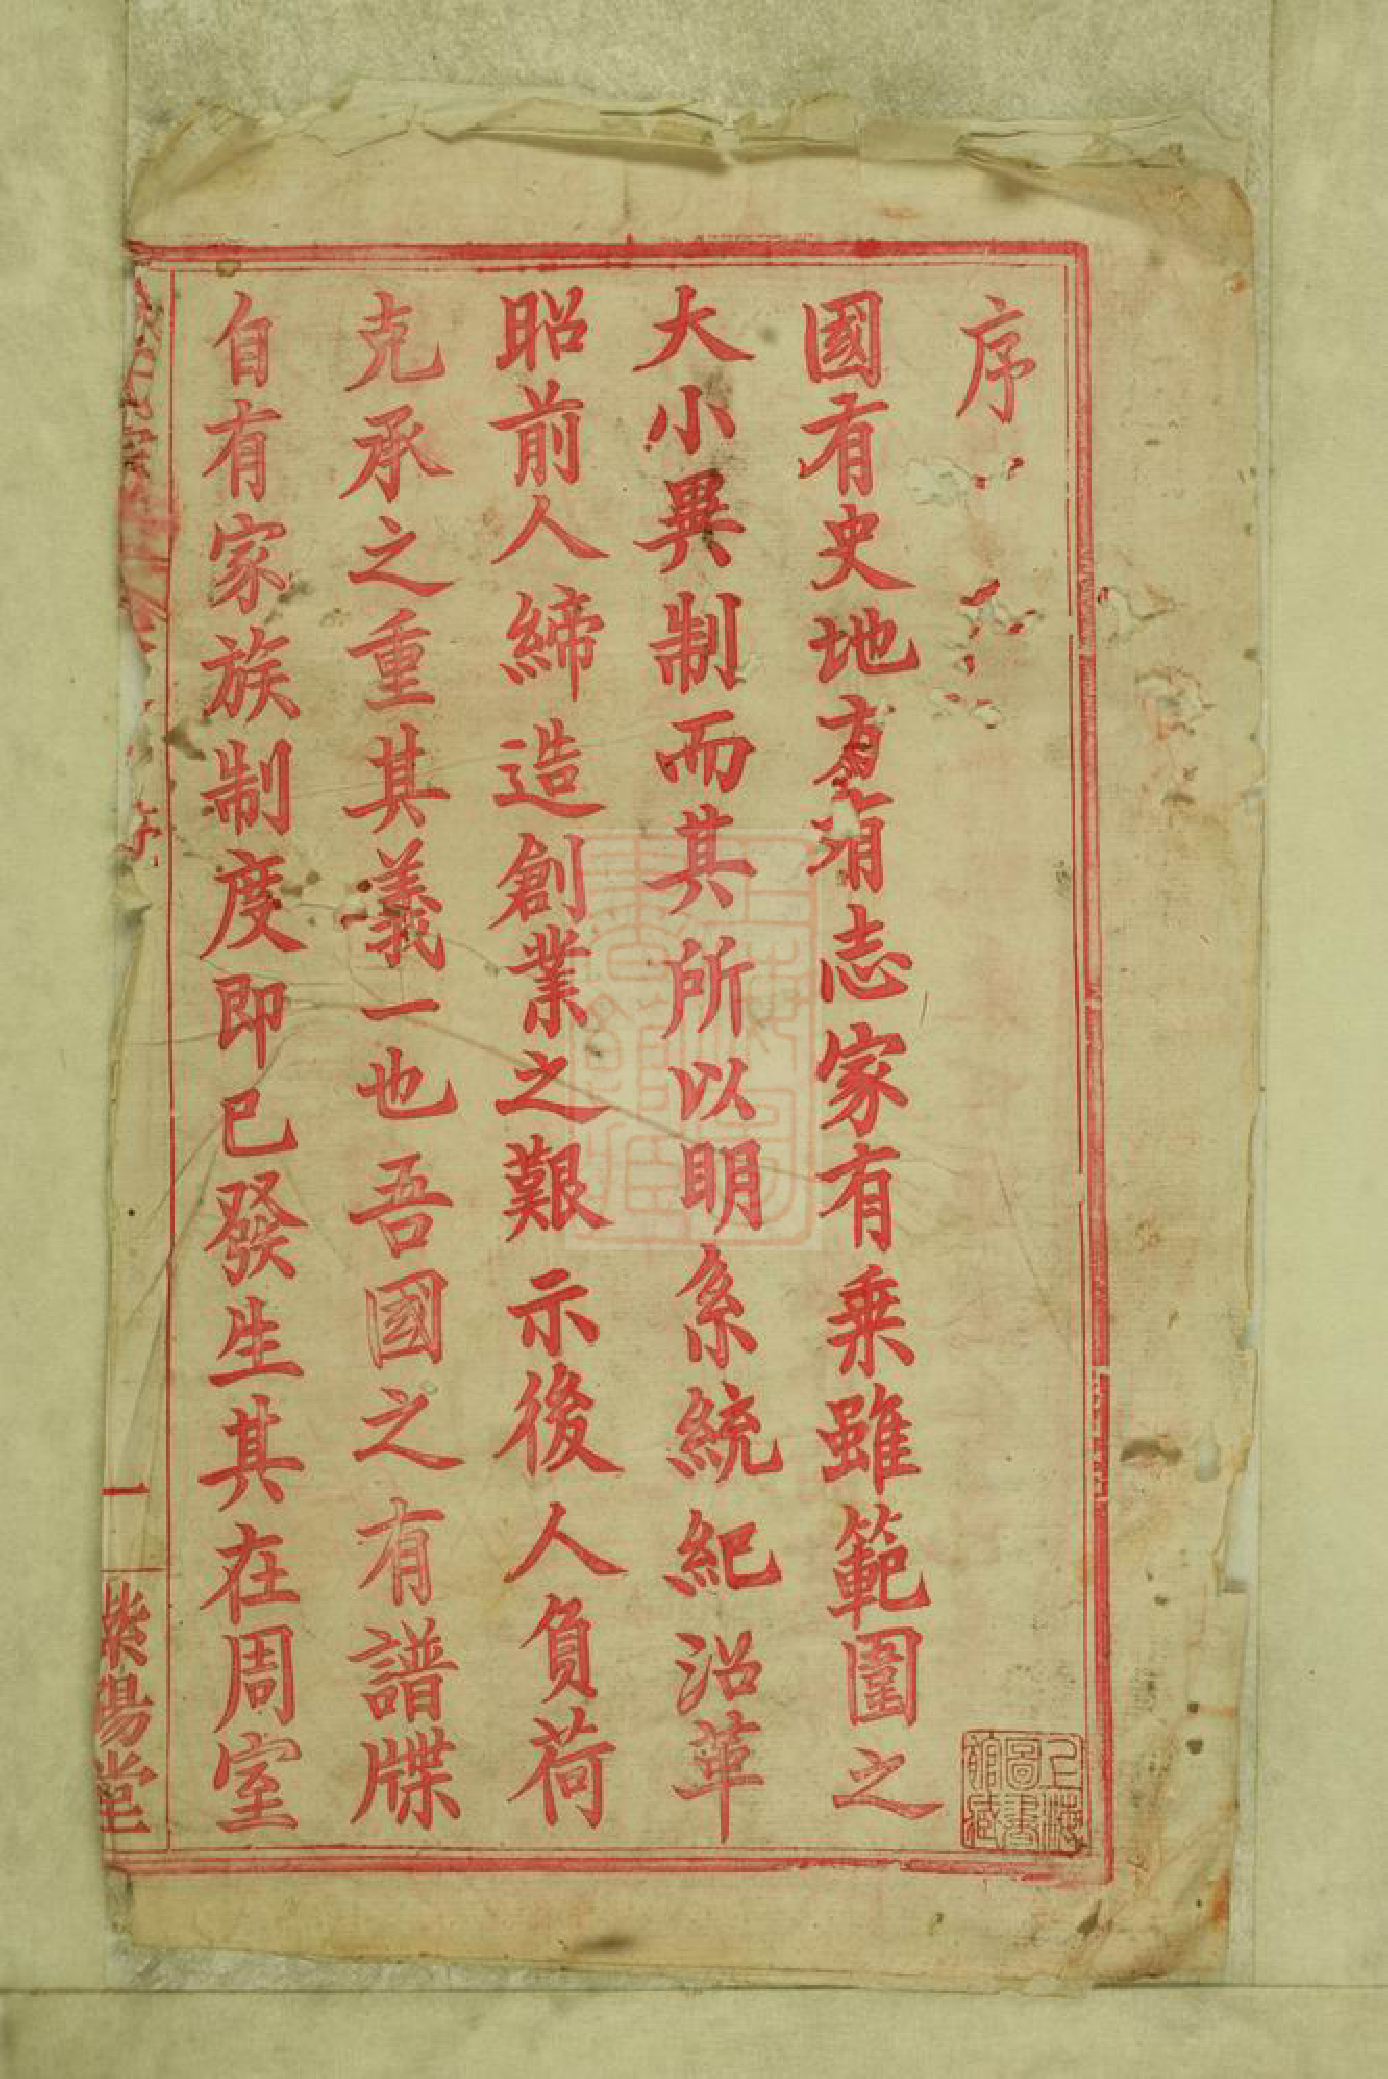 序
國有史地方有志家有乗雖範圍之
大小異制而其所以明系統紀沿革
昭前人締造創業之艱示後人負荷
克承之重其義一也吾國之有譜牒
自有家族制度即已發生其在周室
一
紫陽堂
上海圖書館藏